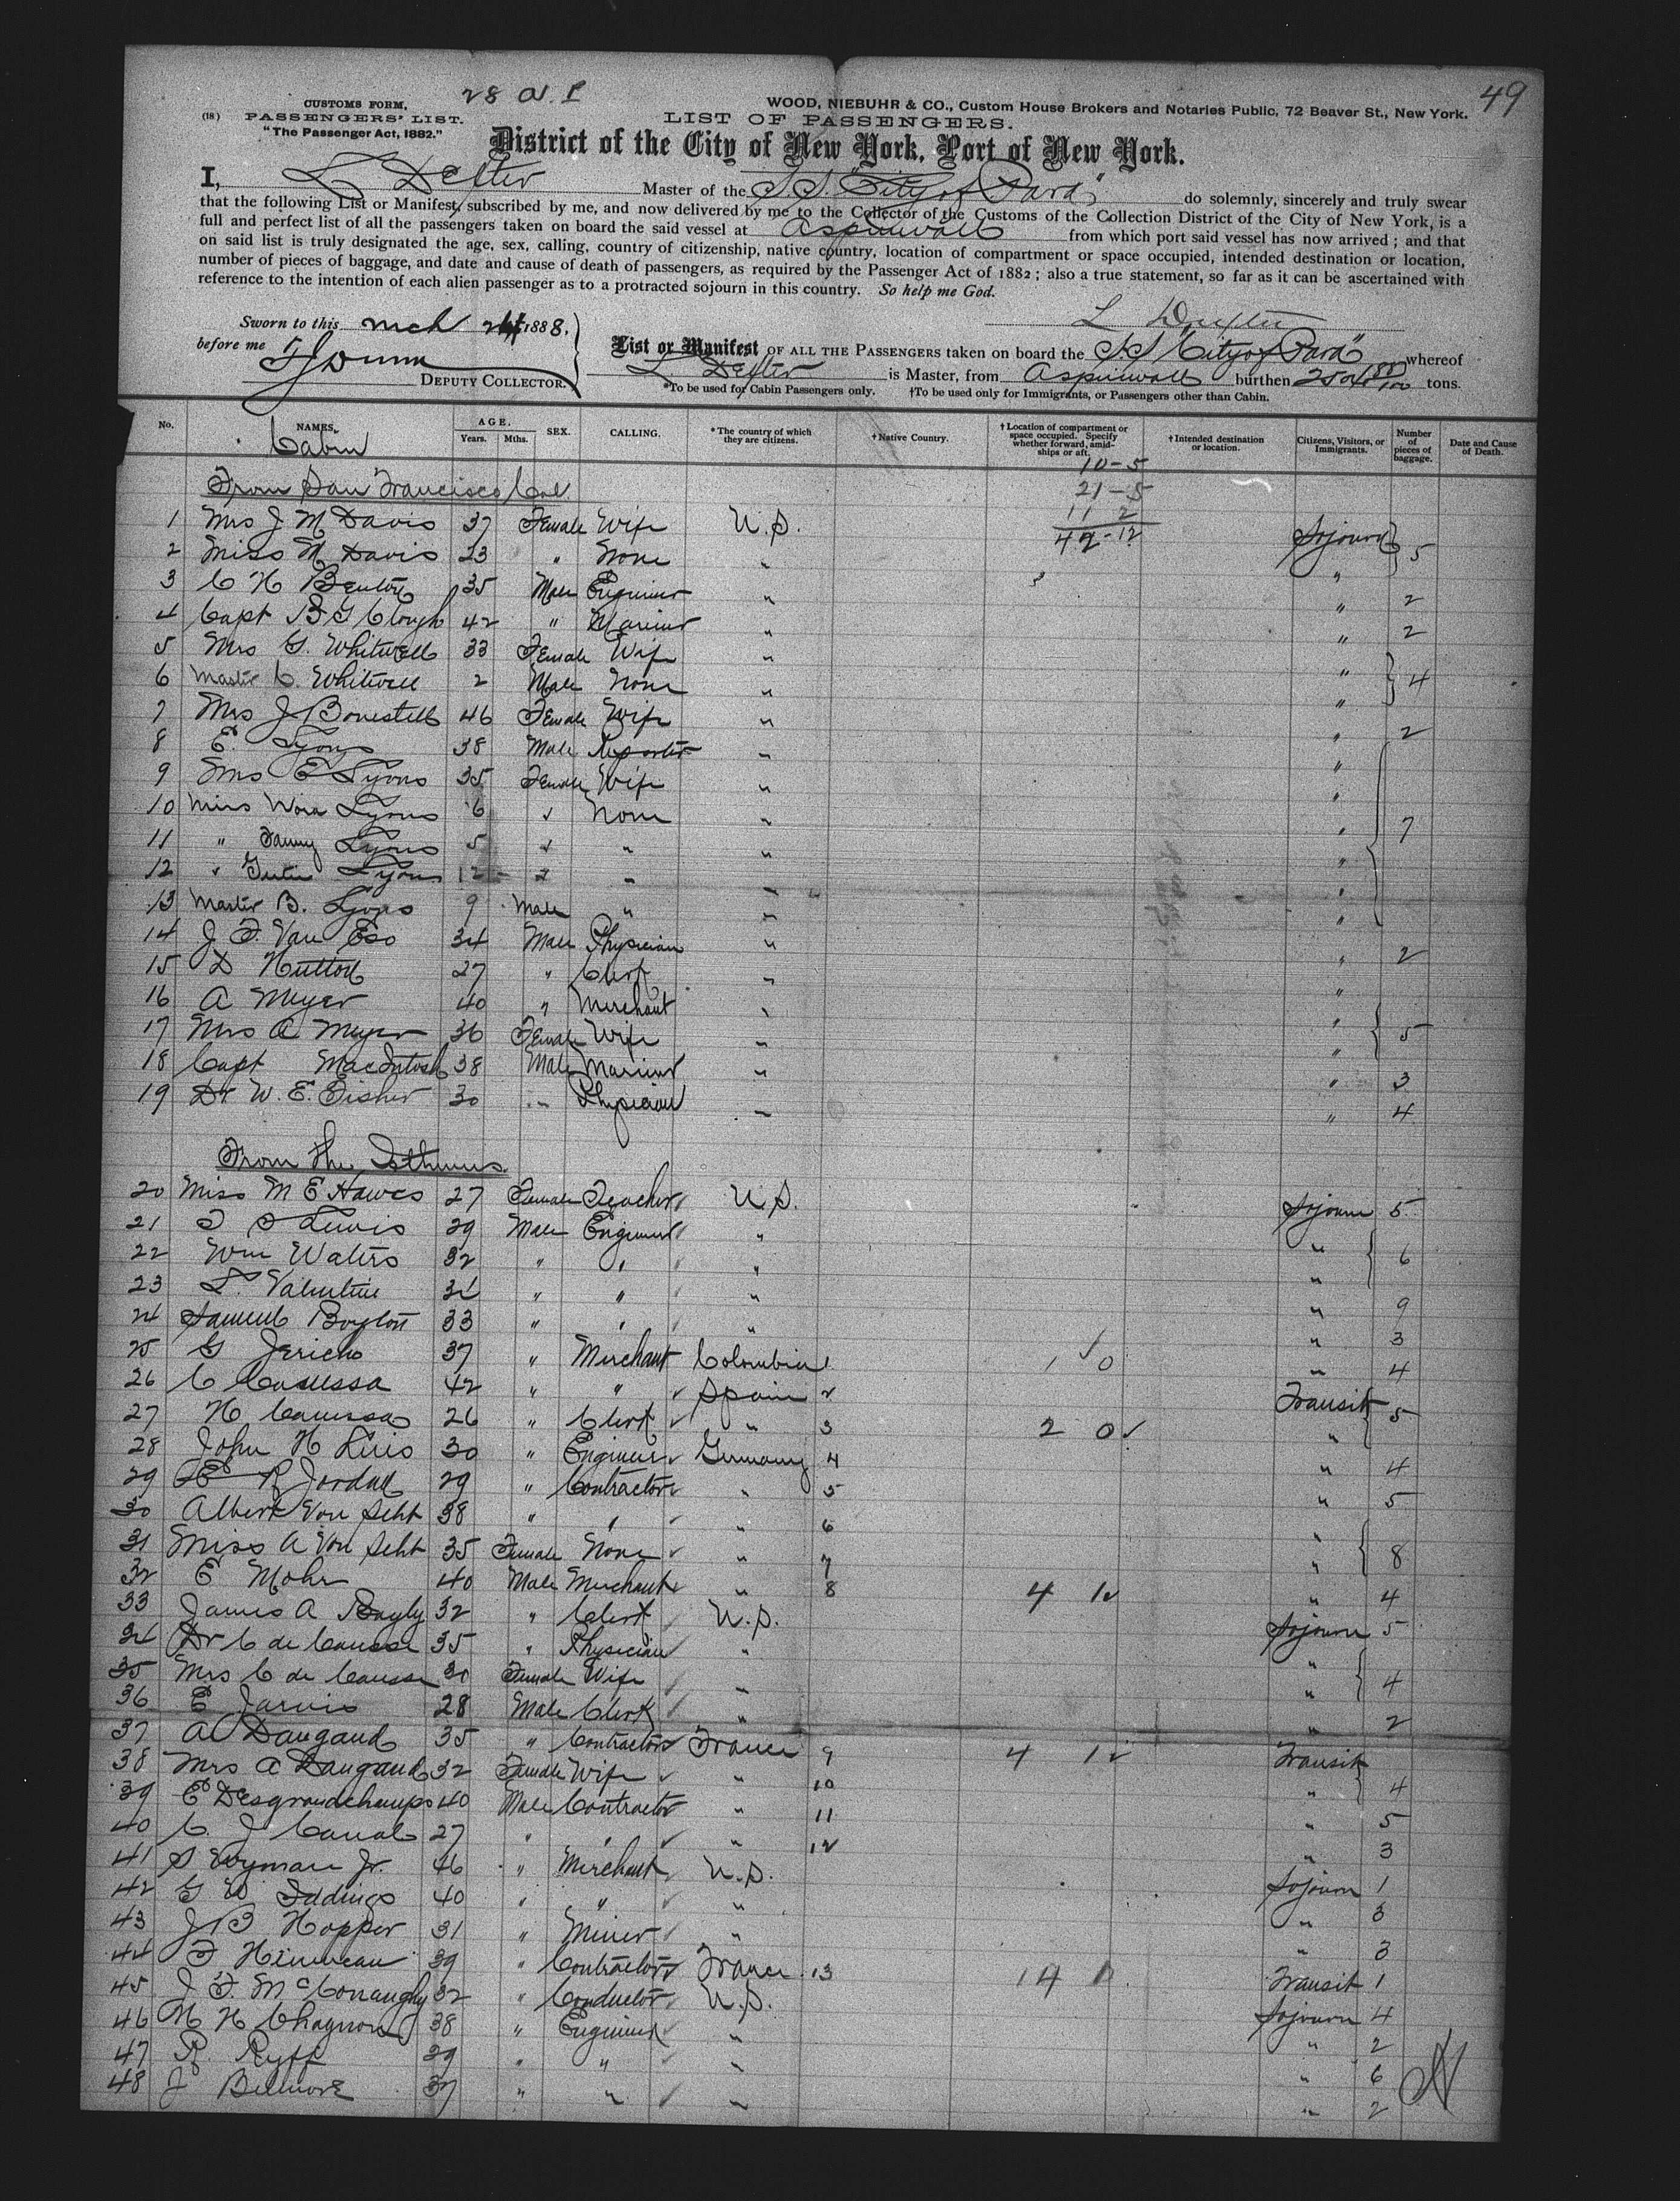 28 N. 1
49
(18) CUSTOMS FORM,
PASSENGERS' LIST.
"The Passenger Act, 1882."
WOOD, NIEBUHR & CO., Custom House Brokers and Notaries Public, 72 Beaver St., New York.
LIST OF PASSENGERS.
District of the City of New York, Port of New York.
I, L Dexter Master of the S.S. "City of Para" do solemnly, sincerely and truly swear
that the following List or Manifest, subscribed by me, and now delivered by me to the Collector of the Customs of the Collection District of the City of New York, is a
full and perfect list of all the passengers taken on board the said vessel at Aspinwall from which port said vessel has now arrived; and that
on said list is truly designated the age, sex, calling, country of citizenship, native country, location of compartment or space occupied, intended destination or location,
number of pieces of baggage, and date and cause of death of passengers, as required by the Passenger Act of 1882; also a true statement, so far as it can be ascertained with
reference to the intention of each alien passenger as to a protracted sojourn in this country. So help me God.
L Dexter
Sworn to this mch 1888.
before me
DEPUTY COLLECTOR.
List or Manifest OF ALL THE PASSENGERS taken on board the S.S "City of Para" whereof
L. Dexter is Master, from Aspinwall burthen tons.
*To be used for Cabin Passengers only. †To be used only for Immigrants, or Passengers other than Cabin.
No. NAMES. AGE. Years. Mths. SEX. CALLING. *The country of which they are citizens. †Native Country. †Location of compartment or space occupied. Specify whether forward, amidships or aft. †Intended destination or location. Citizens, Visitors, or Immigrants. Number of pieces of baggage. Date and Cause of Death.
Cabin
10-5
From San Francisco Cal
21-5
11 2
42-12
1 Mrs J M Davis 37 Female Wife U.S. Sojourn } 5
2 Miss M Davis 23 " None " "
3 C H Benton 35 Male Engineer " " 2
4 Capt B G Clough 42 " Mariner " " 2
5 Mrs G. Whitwell 33 Female Wife " " } 4
6 Master C. Whitwell 2 Male None " "
7 Mrs J Bonestell 46 Female Wife " " 2
8 E. Lyons 38 Male Reporter " "
9 Mrs E Lyons 35 Female Wife " "
10 Miss Nora Lyons 6 " None " " 7
11 " Fanny Lyons 5 " " " "
12 " Lyons 12 " " " "
13 Master B. Lyons 9 Male " " "
14 J F. Van Ess 34 Male Physician " " 2
15 D Hutton 27 " Clerk " "
16 A Meyer 40 " Merchant " " } 5
17 Mrs A Meyer 36 Female Wife " "
18 Capt MacIntosh 38 Male Mariner " " 3
19 Dr W. E. Fisher 30 " Physician " " 4
From the Isthmus
20 Miss M E Hawes 27 Female Teacher U.S. Sojourn 5
21 Lewis 29 Male Engineer " " } 6
22 Wm Walters 32 " " " "
23 L. Valentine 34 " " " " 9
24 Samuel Boylon 33 " " " " 3
25 G Jericho 37 " Merchant Colombia 1 1 0 " 4
26 C Canessa 42 " " Spain 2 Transit } 5
27 N Canessa 26 " Clerk " 3 2 0 "
28 John H 30 " Engineer Germany 4 " 4
29 E R Jordan 29 " Contractor " 5 " 5
30 Albert Von Seht 38 " " " 6 " } 8
31 Miss A Von Seht 35 Female None " 7 "
32 E Mohr 40 Male Merchant " 8 4 1 " 4
33 James A Bayly 32 " Clerk U.S. Sojourn 5
34 Dr C de Causse 35 " Physician " " } 4
35 Mrs C de Causse 30 Female Wife " "
36 E Jarvis 28 Male Clerk " " 2
37 A Daugaud 35 " Contractor France 9 4 1 Transit } 4
38 Mrs A Daugaud 32 Female Wife " 10 "
39 E Desgrandchamps 40 Male Contractor " 11 " 5
40 C. J Canal 27 " " " 12 " 3
41 S Wyman Jr. 46 " Merchant U.S. Sojourn 1
42 G W Iddings 40 " " " " 3
43 J B Hopper 31 " Miner " " 3
44 F 39 " Contractor France 13 Transit 1
45 J F. McConaughy 32 " Conductor U.S. Sojourn 4
46 38 " Engineer " " 2
47 R. Ryff 39 " " " " 6
48 J 37 " " " " 2